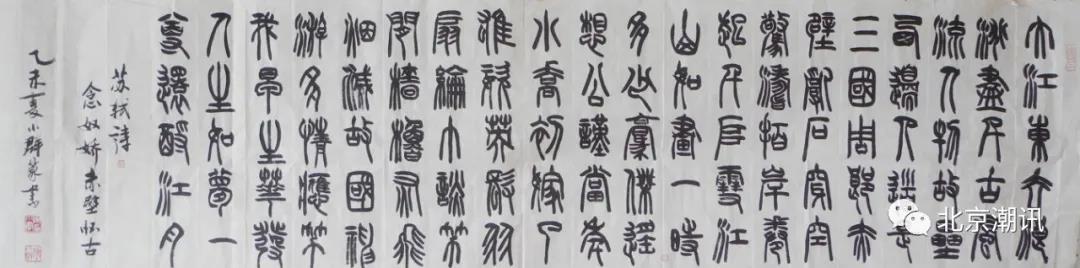 大江東去浪
淘盡千古風
流人物故壘
西邊人道是
三國周郎赤
壁亂石穿空
驚濤拍岸卷
起千堆雪江
山如畫一時
多少豪傑遙
想公謹當年
小喬初嫁了
雄姿英發羽
扇綸巾談笑
間檣櫓灰飛
烟滅故國神
游多情應笑
我早生華發
人生如夢一
尊還酹江月
苏轼诗
念奴娇赤壁怀古
乙未夏小群篆书
北京潮讯